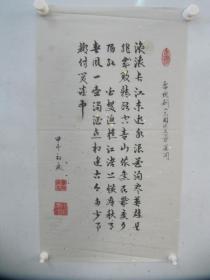 滚滚長江東逝水浪花淘盡英雄是
非成敗轉頭空青山依舊在幾度夕
陽紅白髮漁樵江渚上慣看秋月
春風一壺濁酒喜相逢古今多少事
都付笑談中
甲午